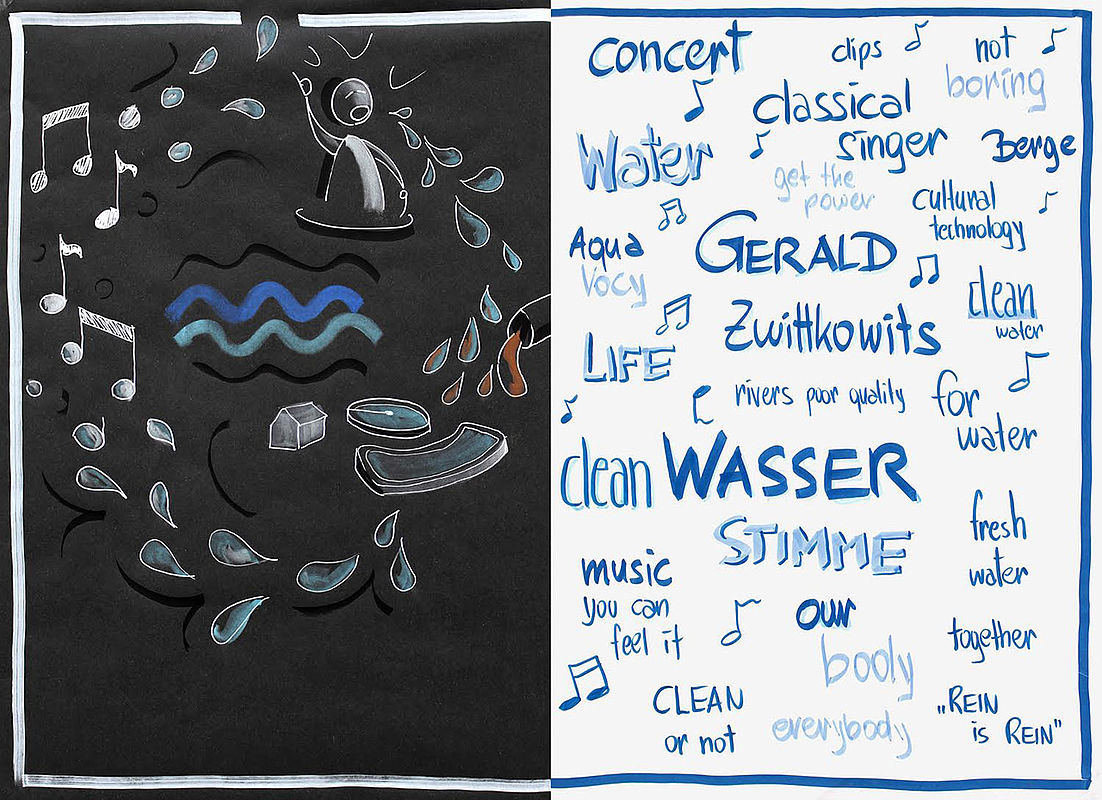 concert
clips
not
boring
classical
singer
Water
Berge
get the
power
cultural
technology
Aqua
Vocy
GERALD
clean
water
Zwittkowits
LIFE
rivers poor quality
for
water
clean WASSER
STIMME
fresh
water
music
you can
feel it
our
body
together
CLEAN
or not
everybody
„REIN
is REIN"